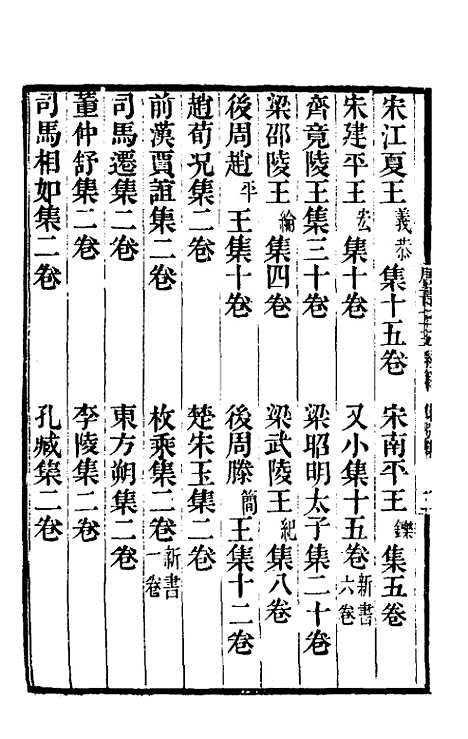 宋江夏王義恭集十五卷 宋南平王鑠集五卷
宋建平王宏集十卷 又小集十五卷新書六卷
齊竟陵王集三十卷 梁昭明太子集二十卷
梁邵陵王綸集四卷 梁武陵王紀集八卷
後周趙平王集十卷 後周滕簡王集十二卷
趙荀況集二卷 楚宋玉集二卷
前漢賈誼集二卷 枚乘集二卷新書一卷
司馬遷集二卷 東方朔集二卷
董仲舒集二卷 李陵集二卷
司馬相如集二卷 孔臧集二卷